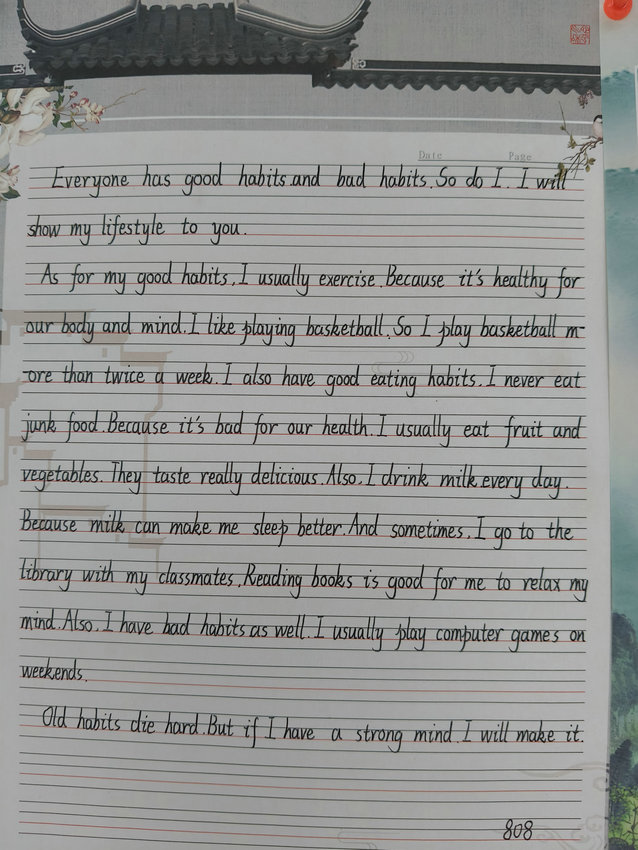 Date Page
Everyone has good habits and bad habits. So do I. I will
show my lifestyle to you.
As for my good habits, I usually exercise. Because it's healthy for
our body and mind. I like playing basketball. So I play basketball m-
-ore than twice a week. I also have good eating habits. I never eat
junk food. Because it's bad for our health. I usually eat fruit and
vegetables. They taste really delicious. Also, I drink milk every day.
Because milk can make me sleep better. And sometimes, I go to the
library with my classmates. Reading books is good for me to relax my
mind. Also, I have bad habits as well. I usually play computer games on
weekends.
Old habits die hard. But if I have a strong mind. I will make it.
808